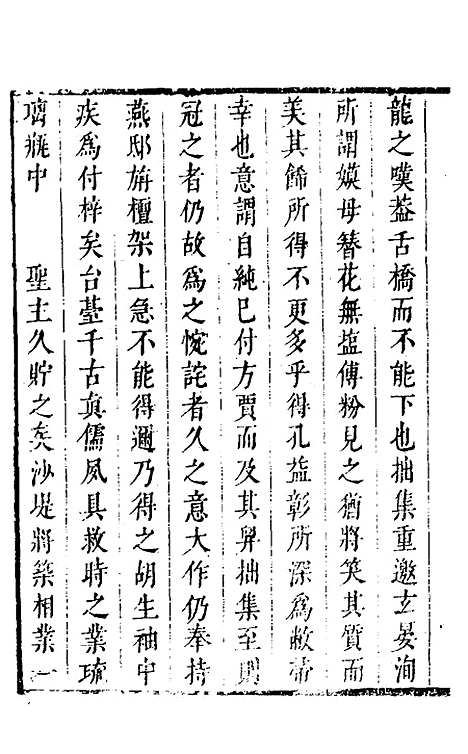 龍之嘆葢舌橋而不能下也拙集重邀玄晏洵
所謂嫫母簪花無塩傅粉見之猶將笑其質而
美其餙所得不更多乎得孔益彰所深爲敝帚
幸也意謂自純已付方賈而及其舁拙集至則
冠之者仍故爲之惋詫者久之意大作仍奉持
燕邸旃檀架上急不能得邇乃得之胡生袖中
疾爲付梓矣台䑓千古眞儒夙具救時之業琉
璃瓶中　聖主久貯之矣沙堤將築相業一